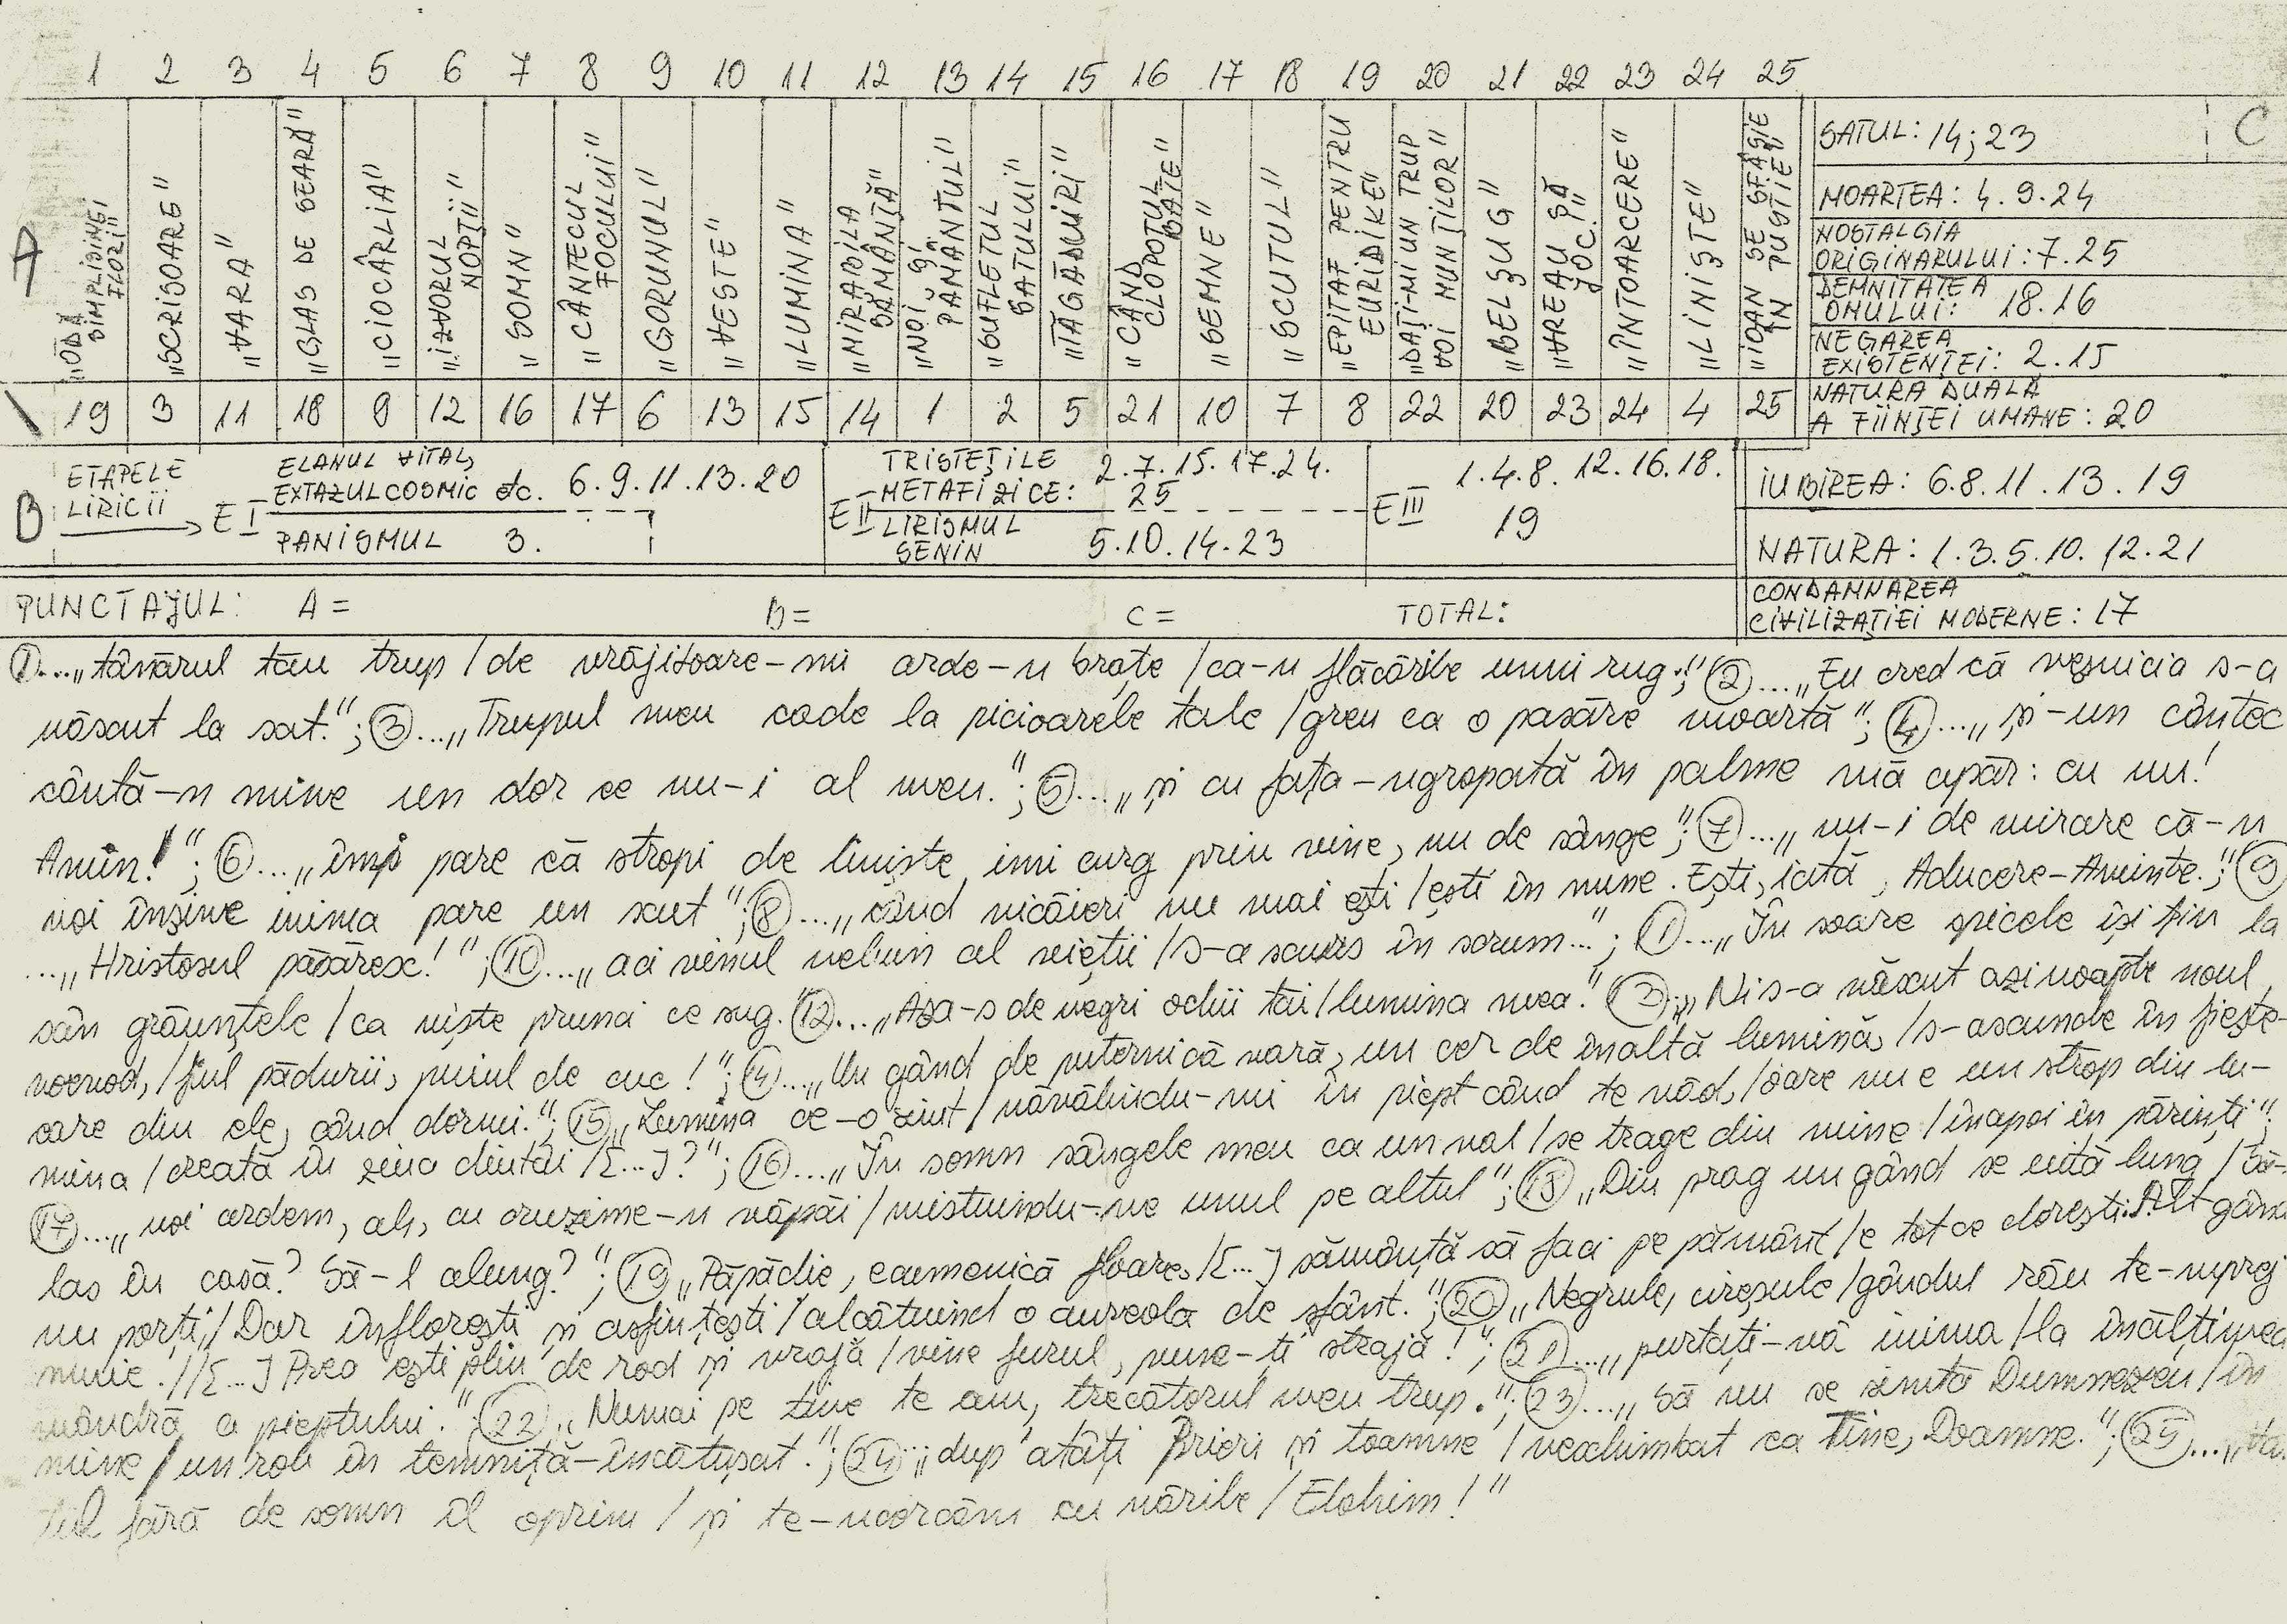 1 2 3 4 5 6 7 8 9 10 11 12 13 14 15 16 17 18 19 20 21 22 23 24 25
A
„ODĂ SIMPLISIMEI FLORI"
„SCRISOARE"
„VARA"
„GLAS DE SEARĂ"
„CIOCÂRLIA"
„IZVORUL NOPȚII"
„SOMN"
„CÂNTECUL FOCULUI"
„GORUNUL"
„VESTE"
„LUMINA"
„MIRABILA SĂMÂNȚĂ"
„NOI ȘI PĂMÂNTUL"
„SUFLETUL SATULUI"
„TĂGĂDUIRI"
„CÂND CLOPOTUL BATE"
„SEMNE"
„SCUTUL"
„EPITAF PENTRU EURIDIKE"
„DAȚI-MI UN TRUP VOI MUNȚILOR"
„BELȘUG"
„VREAU SĂ JOC!"
„ÎNTOARCERE"
„LINIȘTE"
„IOAN SE SFÂȘIE ÎN PUSTIE"
19 3 11 18 9 12 16 17 6 13 15 14 1 2 5 21 10 7 8 22 20 23 24 4 25
C
SATUL: 14; 23
MOARTEA: 4. 9. 24
NOSTALGIA
ORIGINARULUI: 7. 25
DEMNITATEA
OMULUI: 18. 16
NEGAREA
EXISTENȚEI: 2. 15
NATURA DUALĂ
A FIINȚEI UMANE: 20
B ETAPELE LIRICII
E I
ELANUL VITAL,
EXTAZUL COSMIC etc. 6. 9. 11. 13. 20
PANISMUL 3.
E II
TRISTEȚILE
METAFIZICE: 2. 7. 15. 17. 24. 25
LIRISMUL
SENIN 5. 10. 14. 23
E III 1. 4. 8. 12. 16. 18. 19
IUBIREA: 6. 8. 11. 13. 19
NATURA: 1. 3. 5. 10. 12. 21
CONDAMNAREA
CIVILIZAȚIEI MODERNE: 17
PUNCTAJUL: A = B = C = TOTAL:
① ...„tânărul tău trup / de vrăjitoare-mi arde-n brațe / ca-n flăcările unui rug."; ② ...„Eu cred că veșnicia s-a
născut la sat."; ③ ...„Trupul meu cade la picioarele tale / greu ca o pasăre moartă"; ④ ...„și-un cântec
cântă-n mine un dor ce nu-i al meu."; ⑤ ...„și cu fața-ngropată în palme mă apăr: eu nu!
Amin!"; ⑥ ...„îmi pare că stropi de liniște imi curg prin vine, nu de sânge"; ⑦ ...„nu-i de mirare că-n
noi înșine inima pare un scut"; ⑧ ...„când nicăieri nu mai ești / ești în mine. Ești, iată, Aducere-Aminte."; ⑨
...„Hristosul păsăresc!"; ⑩ ...„aci vinul nebun al vieții / s-a scurs în scrum..."; ① ...„În soare spicele își țin la
sân grăunțele / ca niște prunci ce sug. ⑫ ...„Așa-s de negri ochii tăi / lumina mea." ⑬ ;„Ni s-a născut azinoapte noul
voevod, / fiul pădurii, puiul de cuc!"; ⑭ ...„Un gând de puternică vară, un cer de înaltă lumină, / s-ascunde în fiește-
care din ele, când dormi."; ⑮ „Lumina ce-o simt / năvălindu-mi în piept când te văd, / oare nu e un strop din lu-
mina / creată în ziua dintâi / [...]?"; ⑯ ...„În somn sângele meu ca un val / se trage din mine / înapoi în părinți";
⑰ ...„noi ardem, ah, cu cruzime-n văpăi / mistuindu-ne unul pe altul"; ⑱ „Din prag un gând se uită lung / Să-l
las în casă? Să-l alung?"; ⑲ „Păpădie, ecumenică floare, / [...] sămânță să faci pe pământ / e tot ce dorești. Alt gând
nu porți, / Dar înflorești și asfințești / alcătuind o aureola de sfânt."; ⑳ „Negrule, cireșule / gândul rău te-mprej
muie. // [...] Prea ești plin de rod și vrajă / vine furul, pune-ți strajă!"; 21 ...„purtați-vă inima / la înălțimea
mândră a pieptului." 22 „Numai pe tine te am, trecătorul meu trup."; 23 ...„Să nu se simtă Dumnezeu / în
mine / un rob în temniță-încătușat."; 24 „dup'atâți Prieri și toamne / neschimbat ca Tine, Doamne."; 25 ...„Vân-
tul fără de somn îl oprim / și te-ncercăm cu nările / Elohim!"